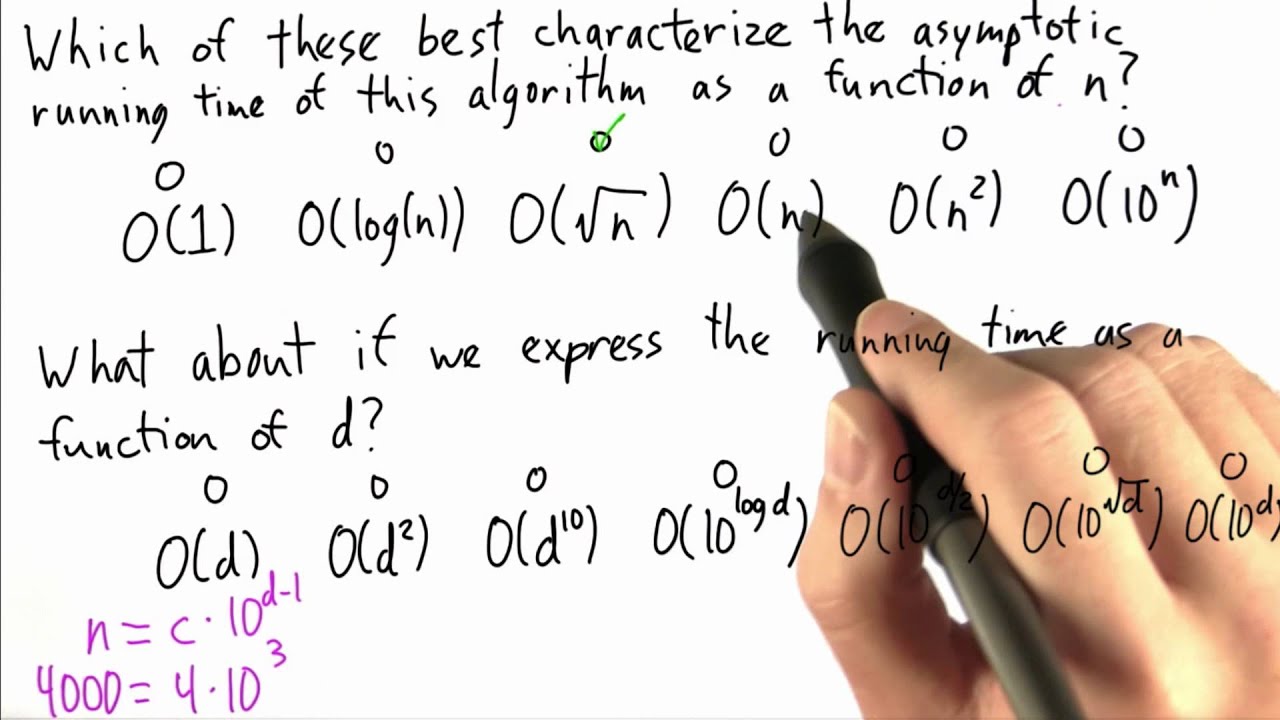 Which of these best characterize the asymptotic
running time of this algorithm as a function of n?
O(1) O(log(n)) O(√n) O(n) O(n²) O(10ⁿ)
What about if we express the running time as a
function of d?
O(d) O(d²) O(d¹⁰) O(10^log d) O(10^d/2) O(10^√d) O(10^d
n = c · 10^d-1
4000 = 4 · 10³